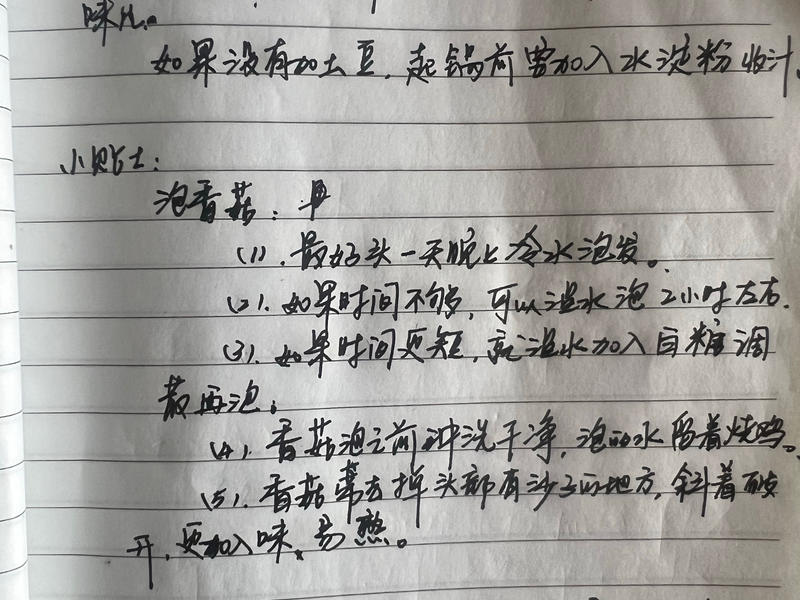 味儿。
如果没有加土豆,起锅前需加入水淀粉收汁。
小贴士:
泡香菇:
(1).最好头一天晚上冷水泡发。
(2).如果时间不够,可以温水泡2小时左右.
(3).如果时间更短,就温水加入白糖调
散再泡;
(4).香菇泡之前冲洗干净,泡的水留着烧鸡。
(5).香菇需去掉头部有沙子的地方,斜着破
开,更加入味、易熟。